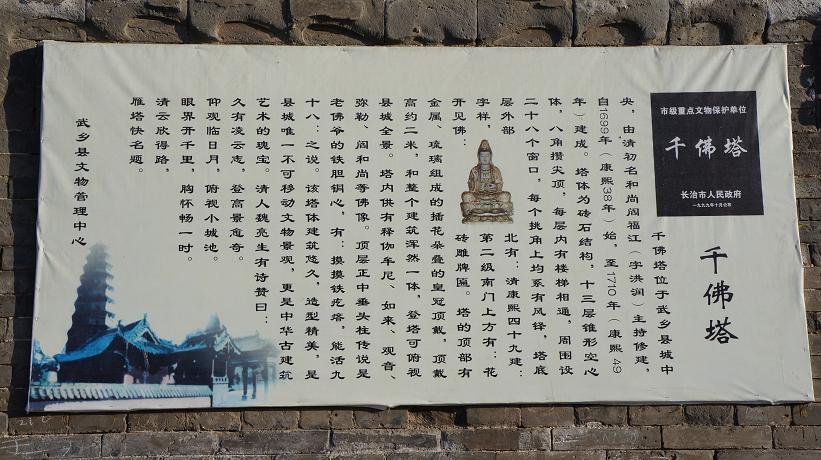 市级重点文物保护单位
千佛塔
长治市人民政府
一九九九年十月公布
千佛塔
千佛塔位于武乡县城中
央，由清初名和尚阎福江（字洪润）主持修建，
自1699年（康熙38年）始，至1710年（康熙49
年）建成。塔体为砖石结构，十三层锥形空心
体，八角攒尖顶，每层内有楼梯相通，周围设
二十八个窗口，每个挑角上均系有风铎，塔底
层外部
北有：清康熙四十九建；
字样，
第二级南门上方有：花
开见佛：
砖雕牌匾。塔的顶部有
金属、琉璃组成的插花朵叠的皇冠顶戴，顶戴
高约二米，和整个建筑浑然一体，登塔可俯视
县城全景。塔内供有释伽牟尼、如来、观音、
弥勒、阎和尚等佛像。顶层正中垂头柱传说是
老佛爷的铁胆铜心，有：摸摸铁疙瘩，能活九
十八：之说。该塔体建筑悠久，造型精美，是
县城唯一不可移动文物景观，更是中华古建筑
艺术的瑰宝。清人魏亮生有诗赞曰：
久有凌云志，登高景愈奇。
仰观临日月，俯视小城池。
眼界开千里，胸怀畅一时。
清云欣得路，
雁塔快名题。
武乡县文物管理中心